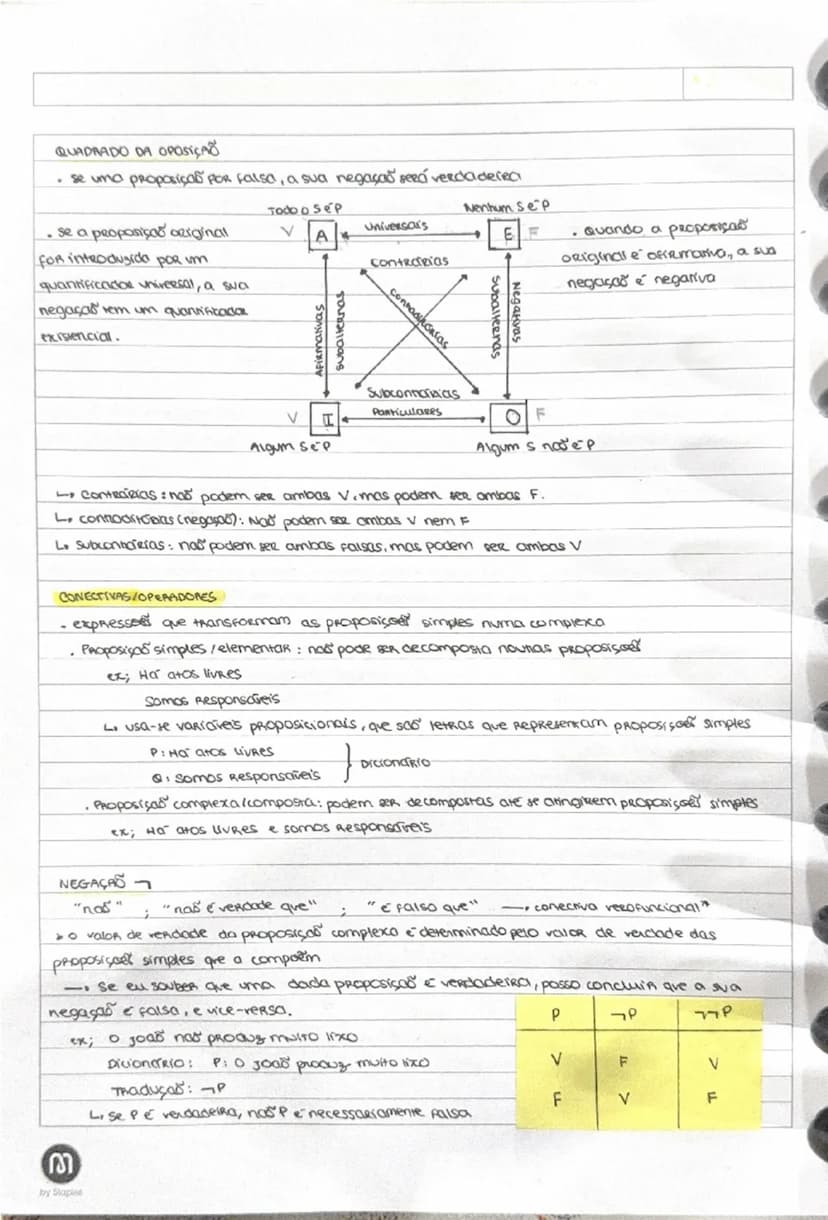 QUADRADO DA OPOSIÇÃO
. se uma proposição for falsa, a sua negação será verdadeira
Todo o S é P
Nenhum S é P
. se a proposição original
for introduzida por um
quantificador universal, a sua
negação tem um quantificador
existencial.
V A Universais E F
contrárias
contraditórias
Afirmativas
subalternas
subalternas
Negativas
Subcontrárias
V I Particulares O F
Algum S é P
Algum S não é P
. Quando a proposição
original é afirmativa, a sua
negação é negativa
↳ contrárias: não podem ser ambas V, mas podem ser ambas F.
↳ contraditórias (negação): Não podem ser ambas V nem F
↳ subcontrárias: não podem ser ambas falsas, mas podem ser ambas V
CONECTIVAS/OPERADORES
. expressões que transformam as proposições simples numa complexa
. Proposição simples/elementar: não pode ser decomposta noutras proposições
ex; Há atos livres
Somos Responsáveis
↳ usa-se variáveis proposicionais, que são letras que representam proposições simples
P: Há atos livres
Q: Somos Responsáveis
} Dicionário
. Proposição complexa/composta: podem ser decompostas até se atingirem proposições simples
ex; Há atos livres e somos Responsáveis
NEGAÇÃO ¬
"não" ; "não é verdade que" ; "é falso que" → conectiva verofuncional*
* o valor de verdade da proposição complexa é determinado pelo valor de verdade das
proposições simples que a compõem
→ Se eu souber que uma dada proposição é verdadeira, posso concluir que a sua
negação é falsa, e vice-versa.
ex; O João não produz muito lixo
Dicionário: P: O João produz muito lixo
Tradução: ¬P
↳ se P é verdadeira, não P é necessariamente falsa
P ¬P ¬¬P
V F V
F V F
by Staples